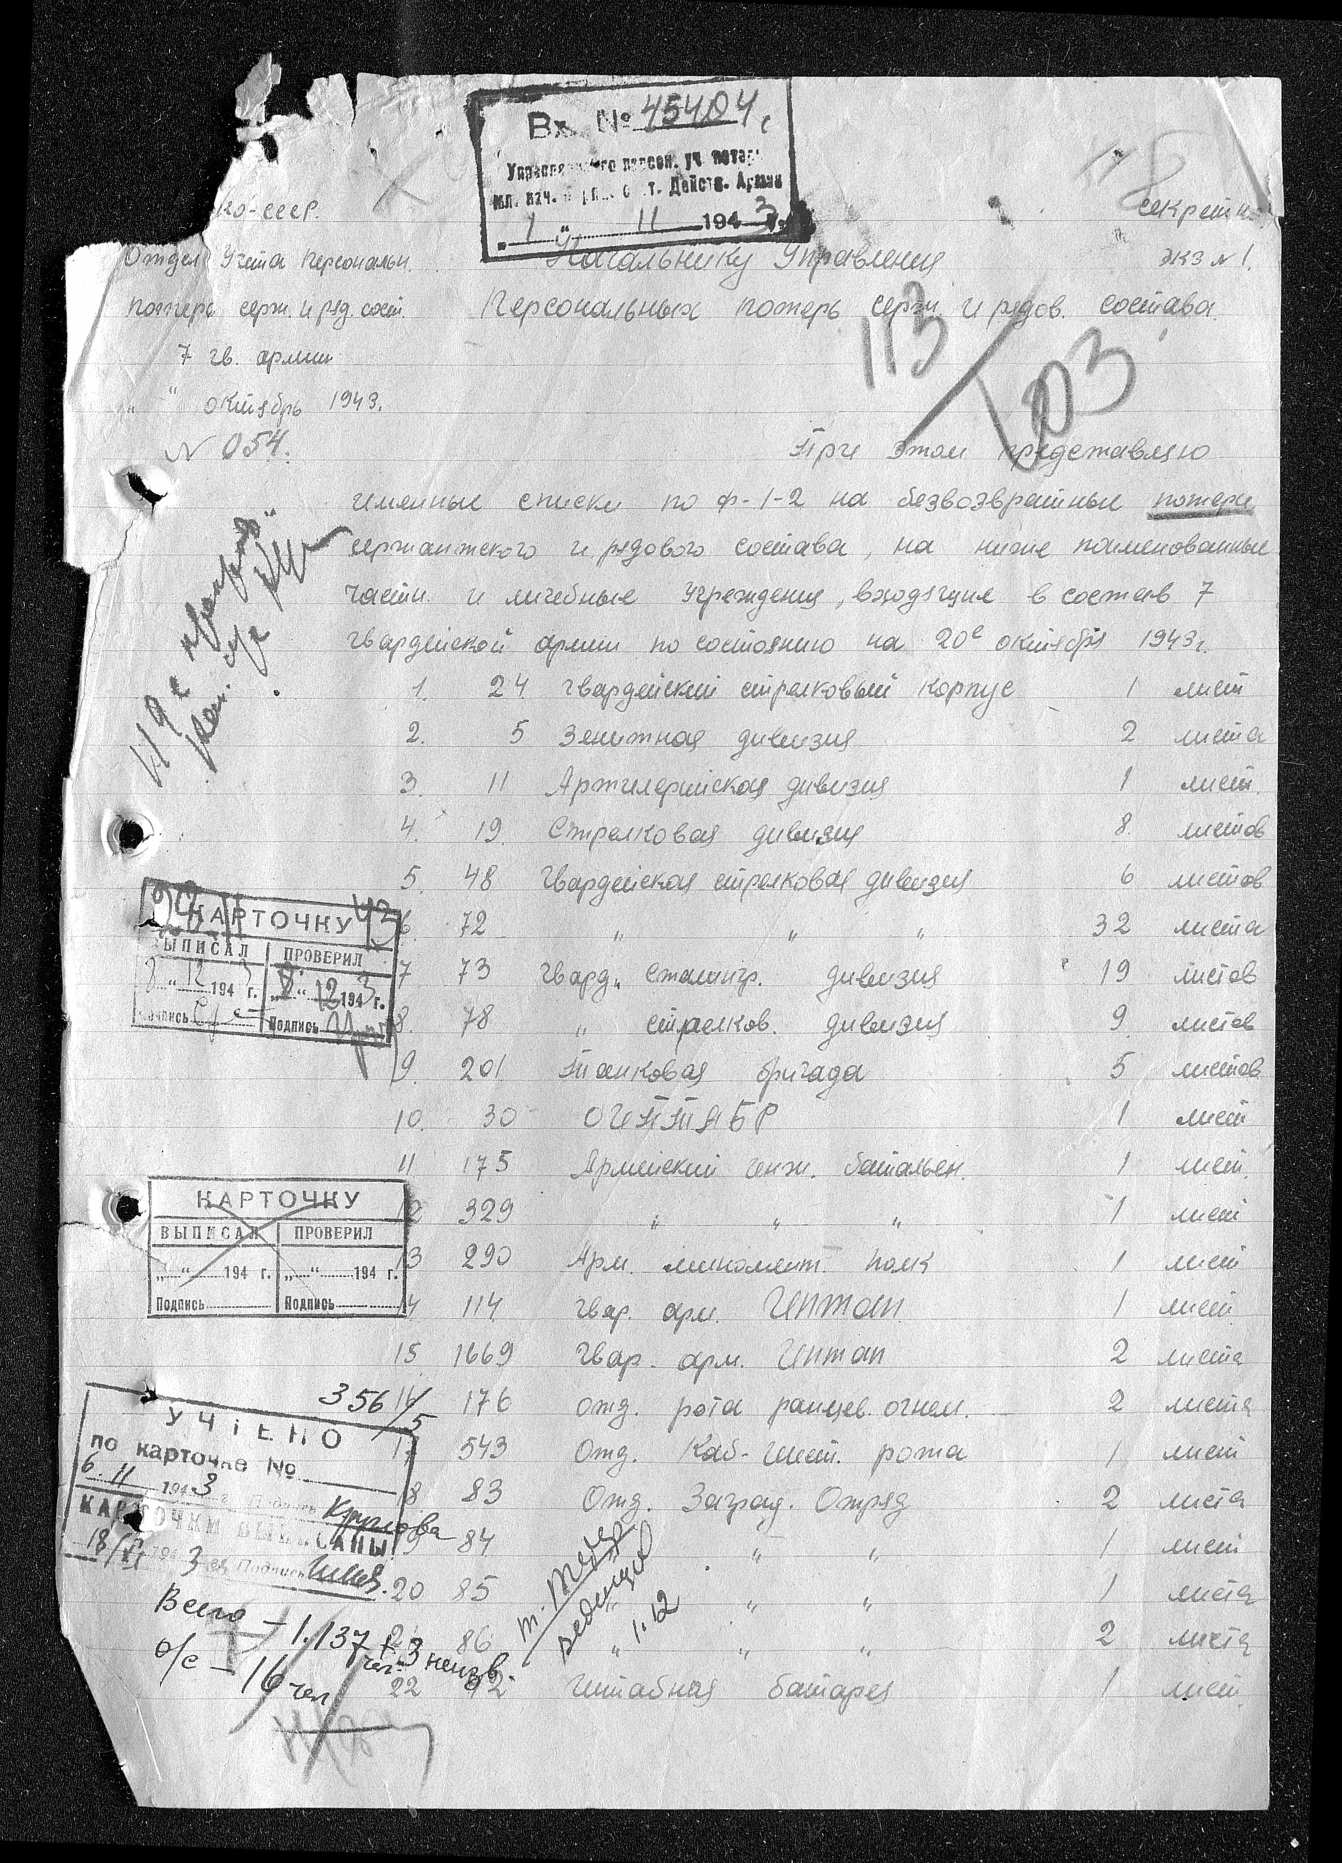 Вх. № 45404
Управления персон. уч. потерь
мл. нач. и ряд. сост. Действ. Армии
„1“ 11 1943 г.
НКО-СССР.
Секретно
Отдел Учета Персональн.
Начальнику Управления
экз № 1.
потерь серж. и ряд. сост.
Персональных потерь серж. и рядов. состава
7 гв. армии
113
203
„ “ октябрь 1943.
№ 054.
При этом представляю
именные списки по ф-1-2 на безвозвратные потери
сержантского и рядового состава, на ниже поименованные
части и личебные учреждения, входящие в состав 7
гвардейской армии по состоянию на 20е октября 1943г.
1. 24 гвардейский стрелковый корпус 1 лист
2. 5 Зенитная дивизия 2 листа
3. 11 Артилерийская дивизия 1 лист.
4. 19 Стрелковая дивизия 8 листов
5. 48 Гвардейская стрелковая дивизия 6 листов
6. 72 „ „ „ 32 листа
7 73 Гвард. Сталингр. дивизия 19 листов
8. 78 „ стрелков. дивизия 9 листов
9. 201 Танковая бригада 5 листов
10. 30 ОИПТАБР 1 лист
11 175 Армейский инж. батальен. 1 лист.
12 329 „ „ „ 1 лист
13 290 Арм. миномент. полк 1 лист
14 114 Гвар. арм. Иптап 1 лист
15 1669 Гвар. арм. Иптап 2 листа
16 176 отд. рота ранцев. огнем. 2 листа
17 543 Отд. Каб-шест. рота 1 лист
18. 83 Отд. Заград. Отряд 2 листа
19 84 „ „ 1 лист
20 85 „ „ „ 1 листа
21 86 „ „ „ 2 листа
22 92 Штабная батарея 1 лист
КАРТОЧКУ
ВЫПИСАЛ ПРОВЕРИЛ
8 „ 12 1943 г. „8“ 12 1943 г.
Подпись Подпись
КАРТОЧКУ
ВЫПИСАЛ ПРОВЕРИЛ
„ “ 194 г. „ “ 194 г.
Подпись Подпись
356/5
УЧТЕНО
по карточке №
6. 11 1943 г. Подпись Круглова
КАРТОЧКИ ВЫПИСАНЫ
18/XI 1943 г. Подпись
Всего – 1.137 + 3 неизв.
чел.
о/с – 16 чел
1.12